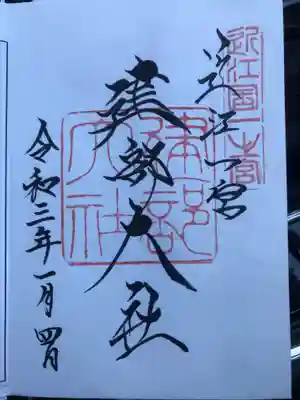 近江一宮
建部大社
令和三年一月四日
近江国一之宮
建部大社